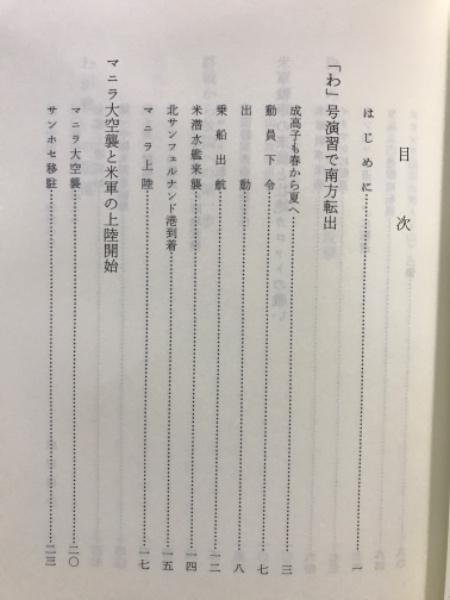 目次
はじめに……一
「わ」号演習で南方転出
成高子も春から夏へ……三
動員下令……七
出動……八
乗船出航……一二
米潜水艦来襲……一四
北サンフェルナンド港到着……一五
マニラ上陸……一七
マニラ大空襲と米軍の上陸開始
マニラ大空襲……二〇
サンホセ移駐……二三